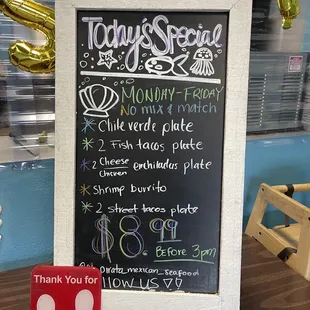 Today's Special
MONDAY-FRIDAY
No mix & match
* Chile verde plate
* 2 Fish tacos plate
* 2 Cheese enchiladas plate
Chicken
* Shrimp burrito
* 2 street tacos plate
$8.99
BEFORE 3pm
pirata_mexican_seafood
FOLLOW US
Thank You for